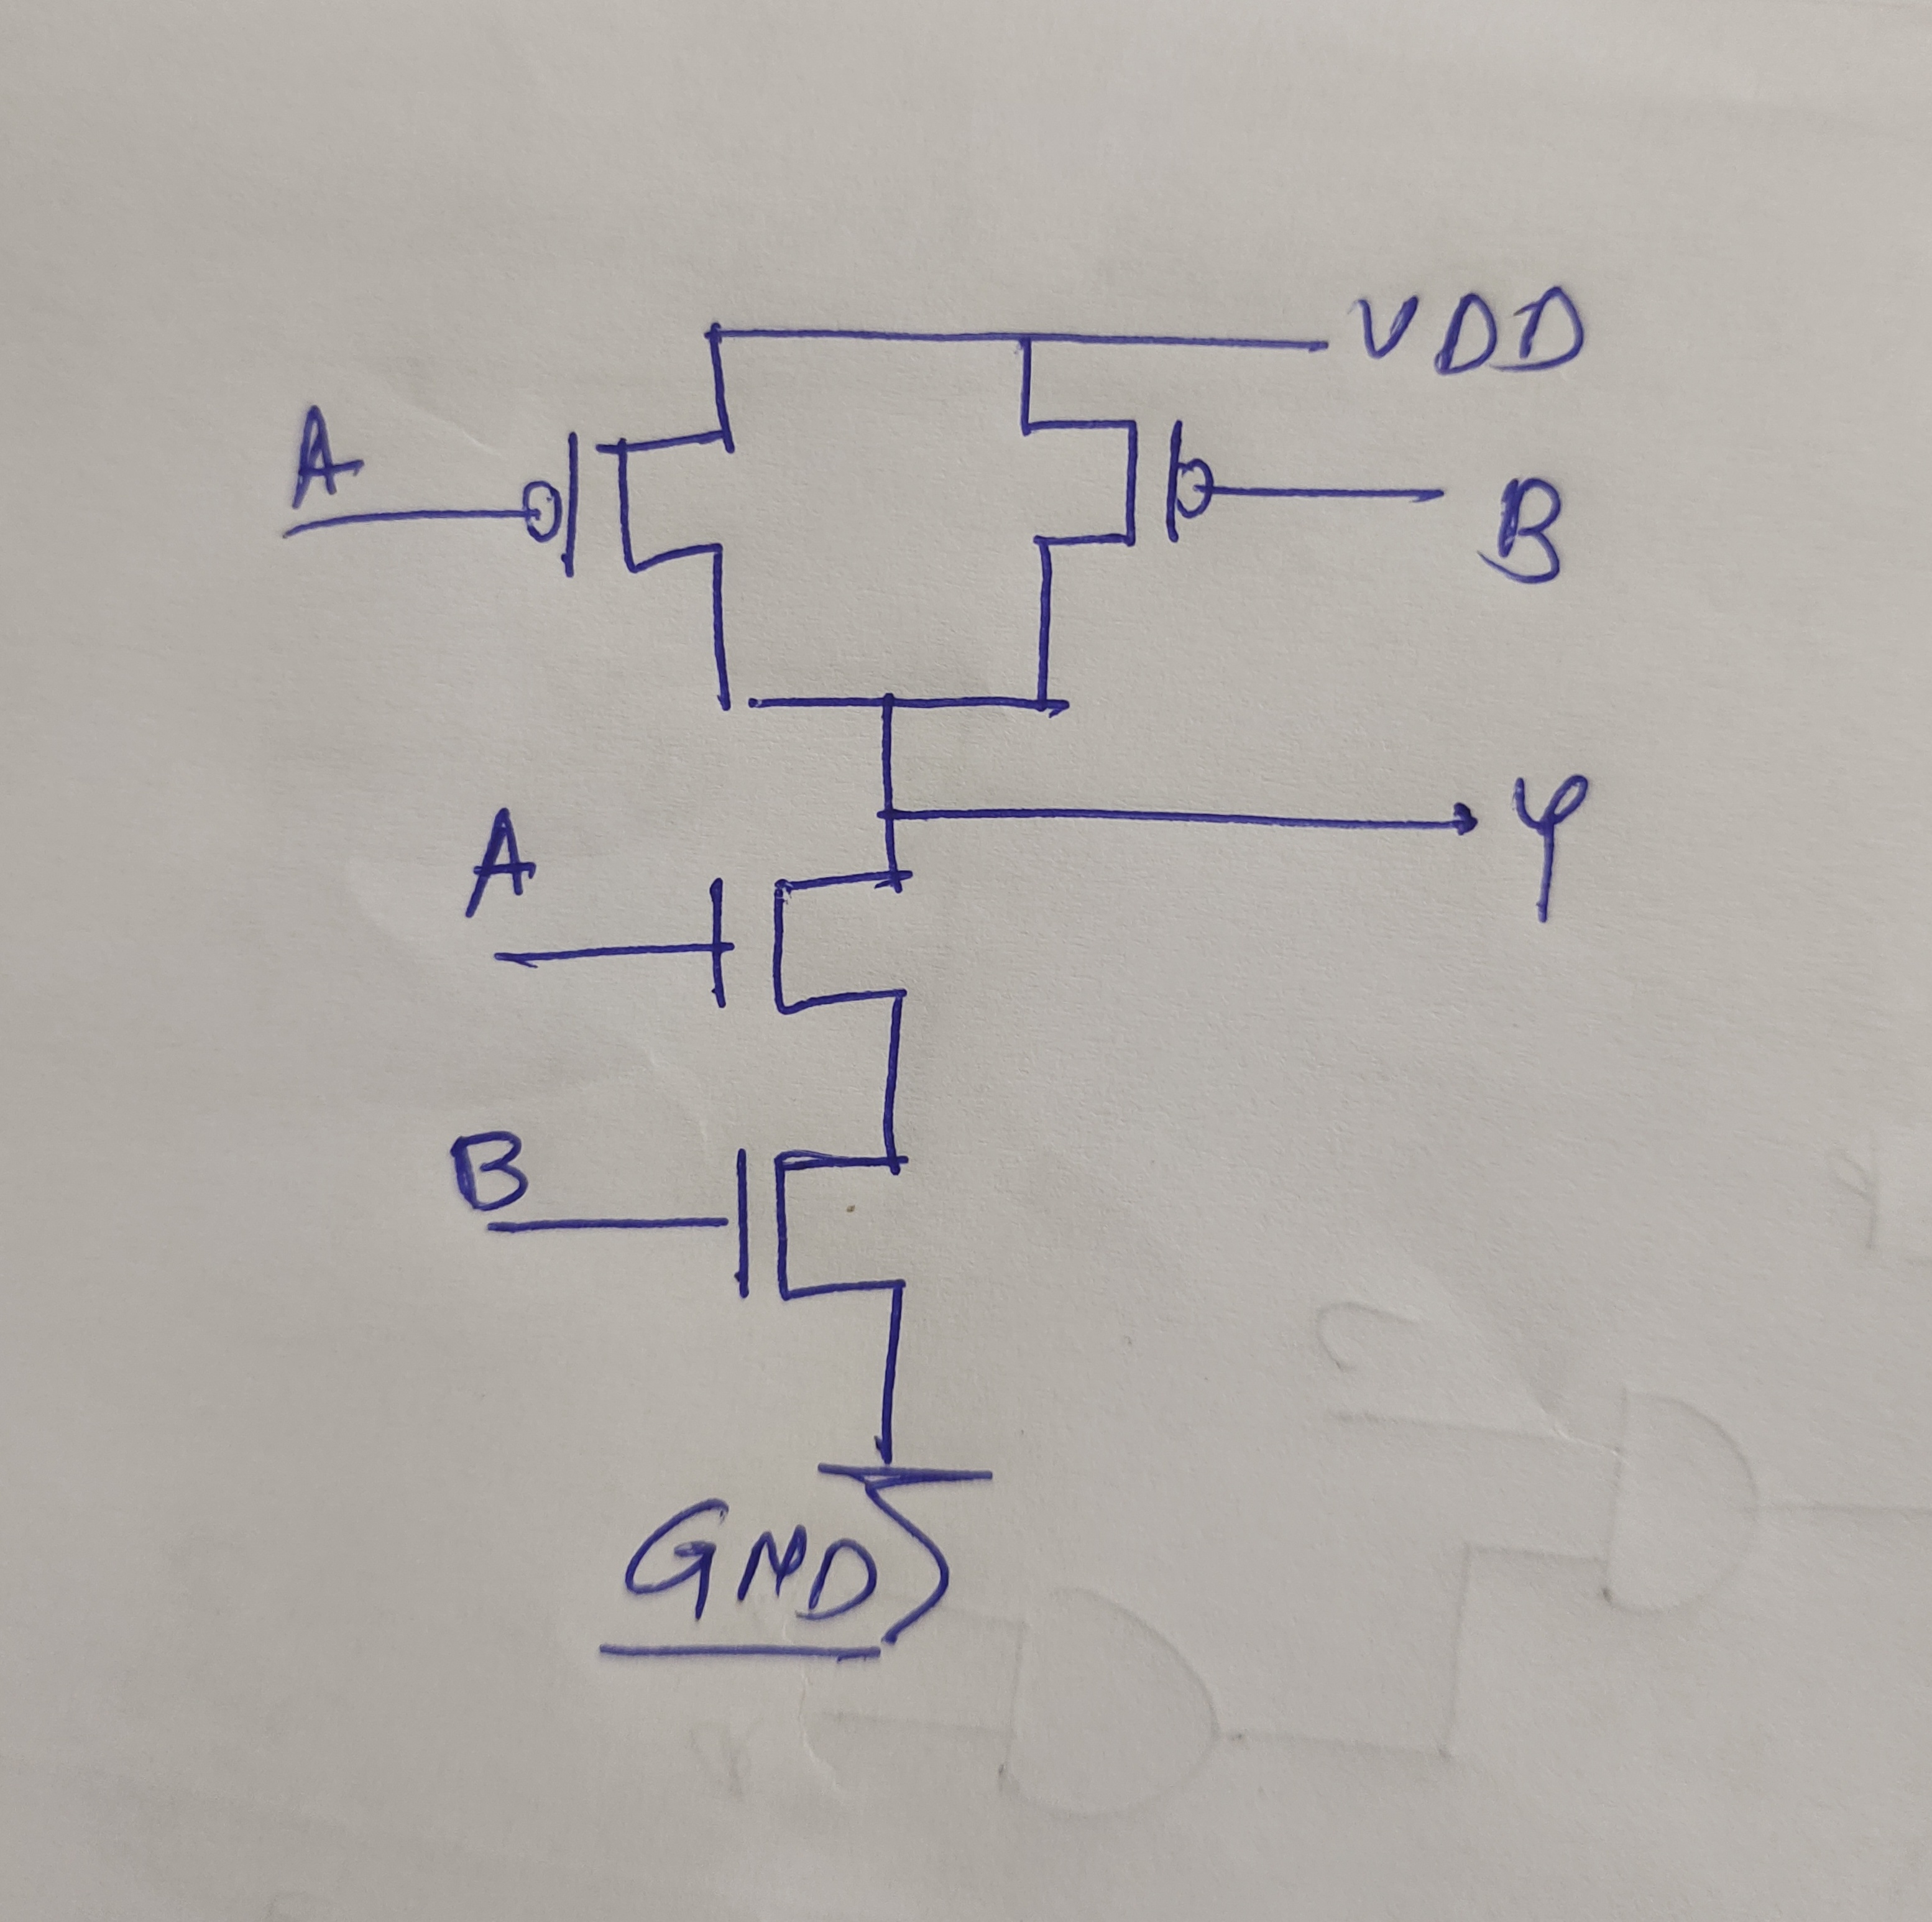 VDD
A
B
Y
A
B
GND